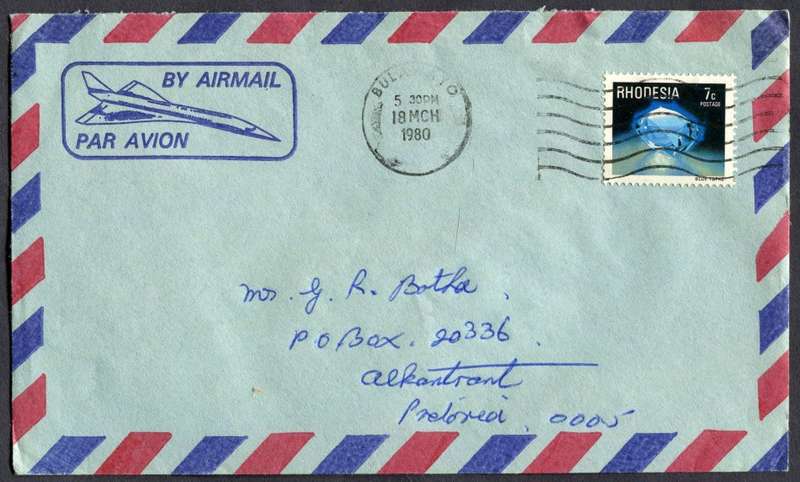 BY AIRMAIL
PAR AVION
5 30PM
18 MCH
1980
RHODESIA 7c
POSTAGE
BLUE TOPAZ
Mrs. G. R. Botha,
P O Box. 20336.
Alkantrant
Pretoria, 0005